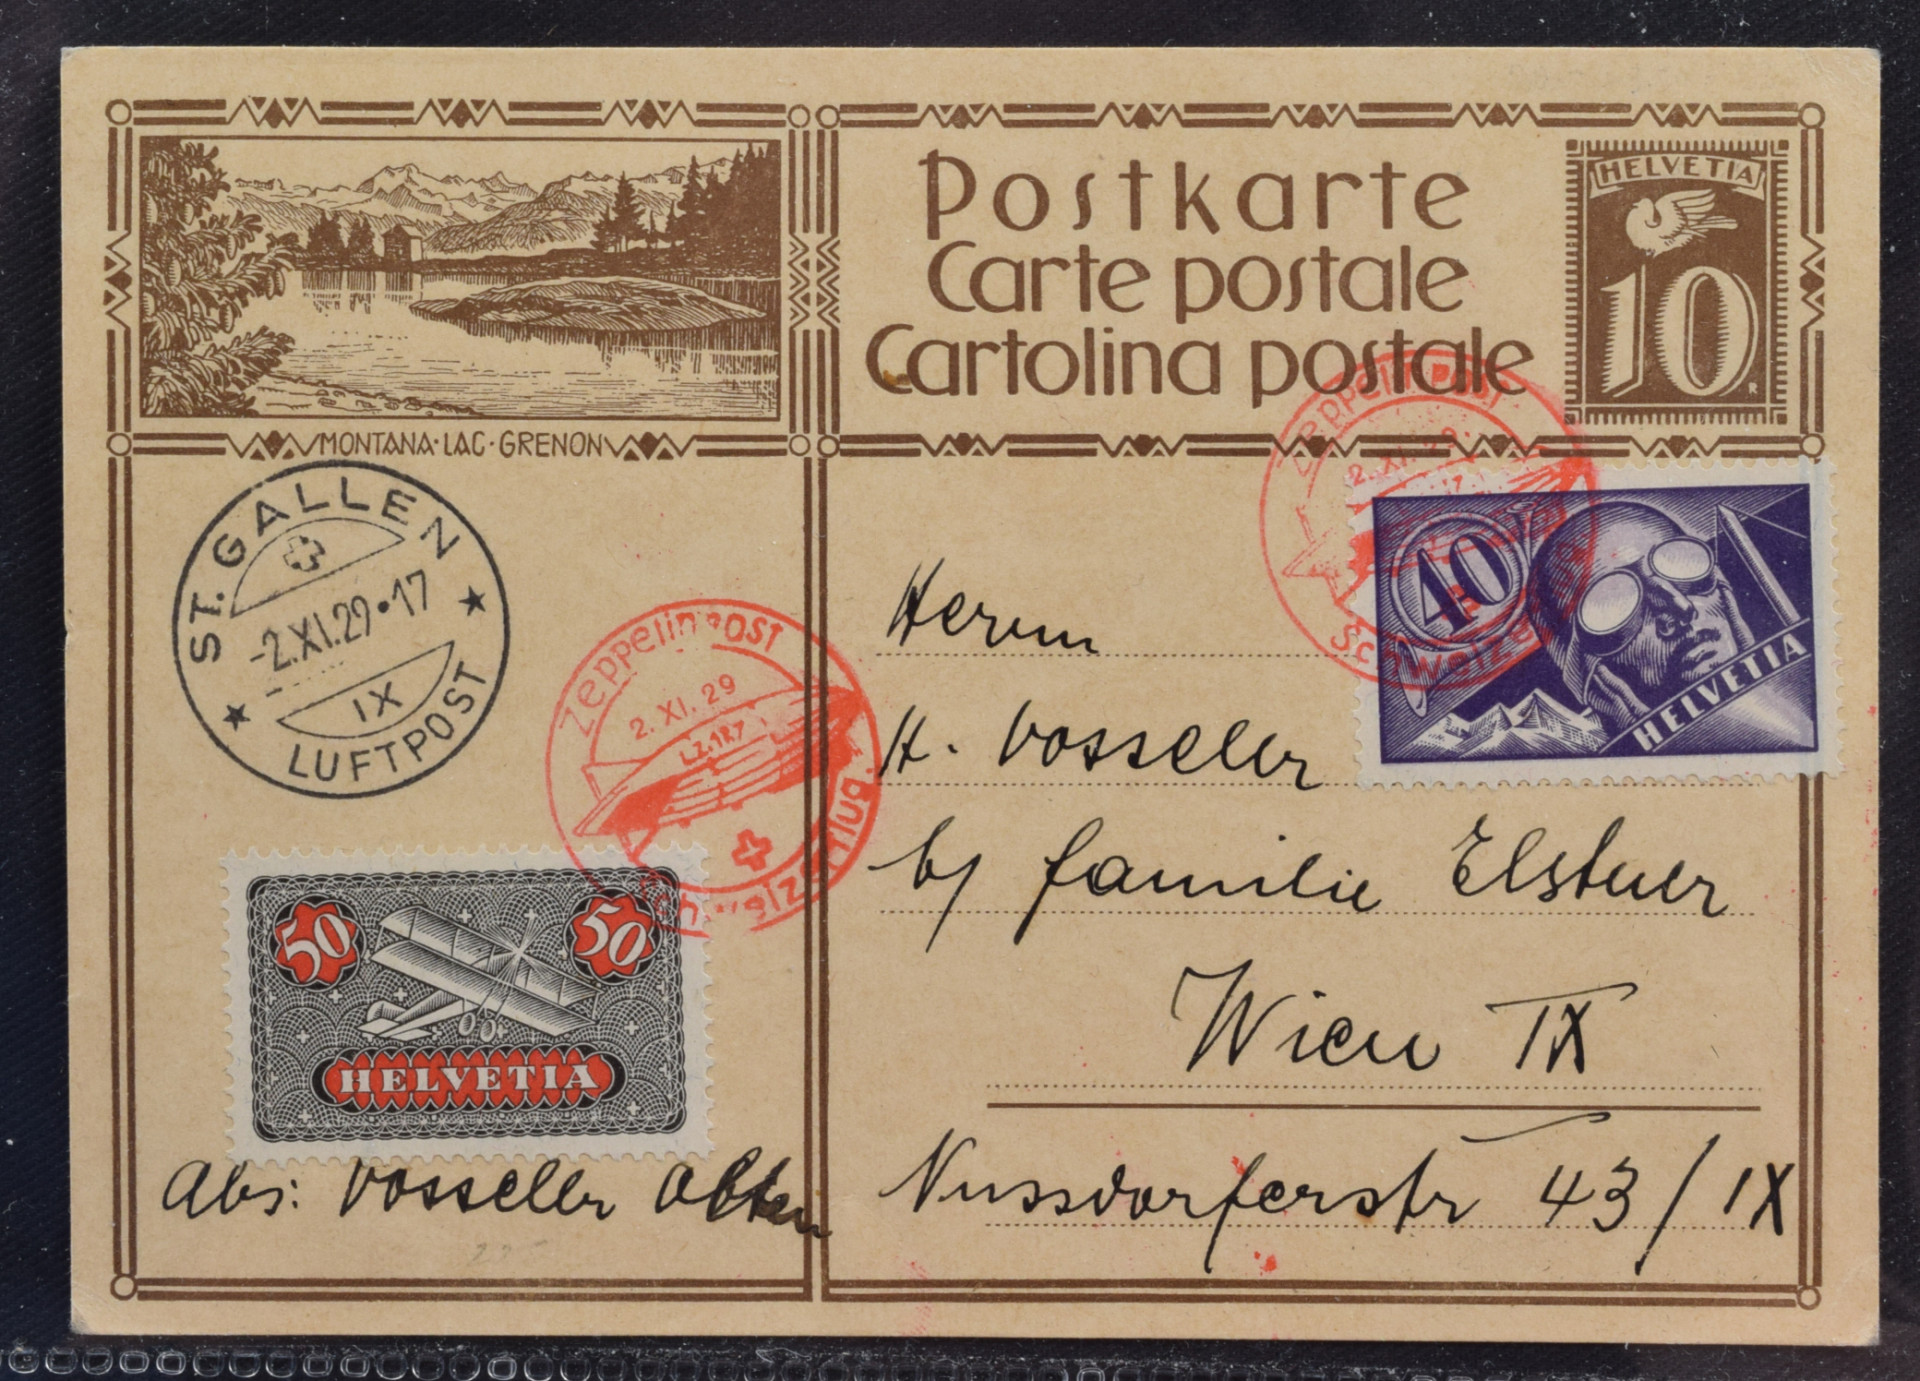 Postkarte
Carte postale
Cartolina postale
HELVETIA
10
MONTANA·LAC·GRENON
ST. GALLEN
-2.XI.29•17
IX
LUFTPOST
Zeppelin Post
2. XI. 29
L.Z.127
Schweizerflug
Zeppelin Post
2. XI. 29
Schweizerflug
40
HELVETIA
50 50
HELVETIA
Herrn
H. Vosseler
b/ Familie Elstner
Wien IX
Nussdorferstr 43/IX
Abs: Vosseler Olten